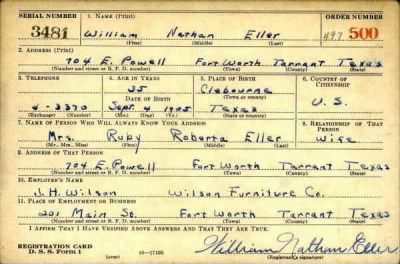 SERIAL NUMBER 1. NAME (Print) ORDER NUMBER
3481 William Nathan Eller 497 500
(First) (Middle) (Last)
2. ADDRESS (Print)
704 E. Powell Fort Worth Tarrant Texas
(Number and street or R. F. D. number) (Town) (County) (State)
3. TELEPHONE 4. AGE IN YEARS 5. PLACE OF BIRTH 6. COUNTRY OF CITIZENSHIP
35 Clebourne
DATE OF BIRTH
4-3370 Sept. 4 1905 Texas U.S.
(Exchange) (Number) (Mo.) (Day) (Yr.) (State or country)
7. NAME OF PERSON WHO WILL ALWAYS KNOW YOUR ADDRESS 8. RELATIONSHIP OF THAT PERSON
Mrs. Ruby Roberta Eller Wife
(Mr., Mrs., Miss) (First) (Middle) (Last)
9. ADDRESS OF THAT PERSON
704 E. Powell Fort Worth Tarrant Texas
(Number and street or R. F. D. number) (Town) (County) (State)
10. EMPLOYER'S NAME
J. H. Wilson Wilson Furniture Co.
11. PLACE OF EMPLOYMENT OR BUSINESS
201 Main St. Fort Worth Tarrant Texas
(Number and street or R. F. D. number) (Town) (County) (State)
I AFFIRM THAT I HAVE VERIFIED ABOVE ANSWERS AND THAT THEY ARE TRUE.
REGISTRATION CARD
D. S. S. Form 1 16-17105 William Nathan Eller
(Registrant's signature)